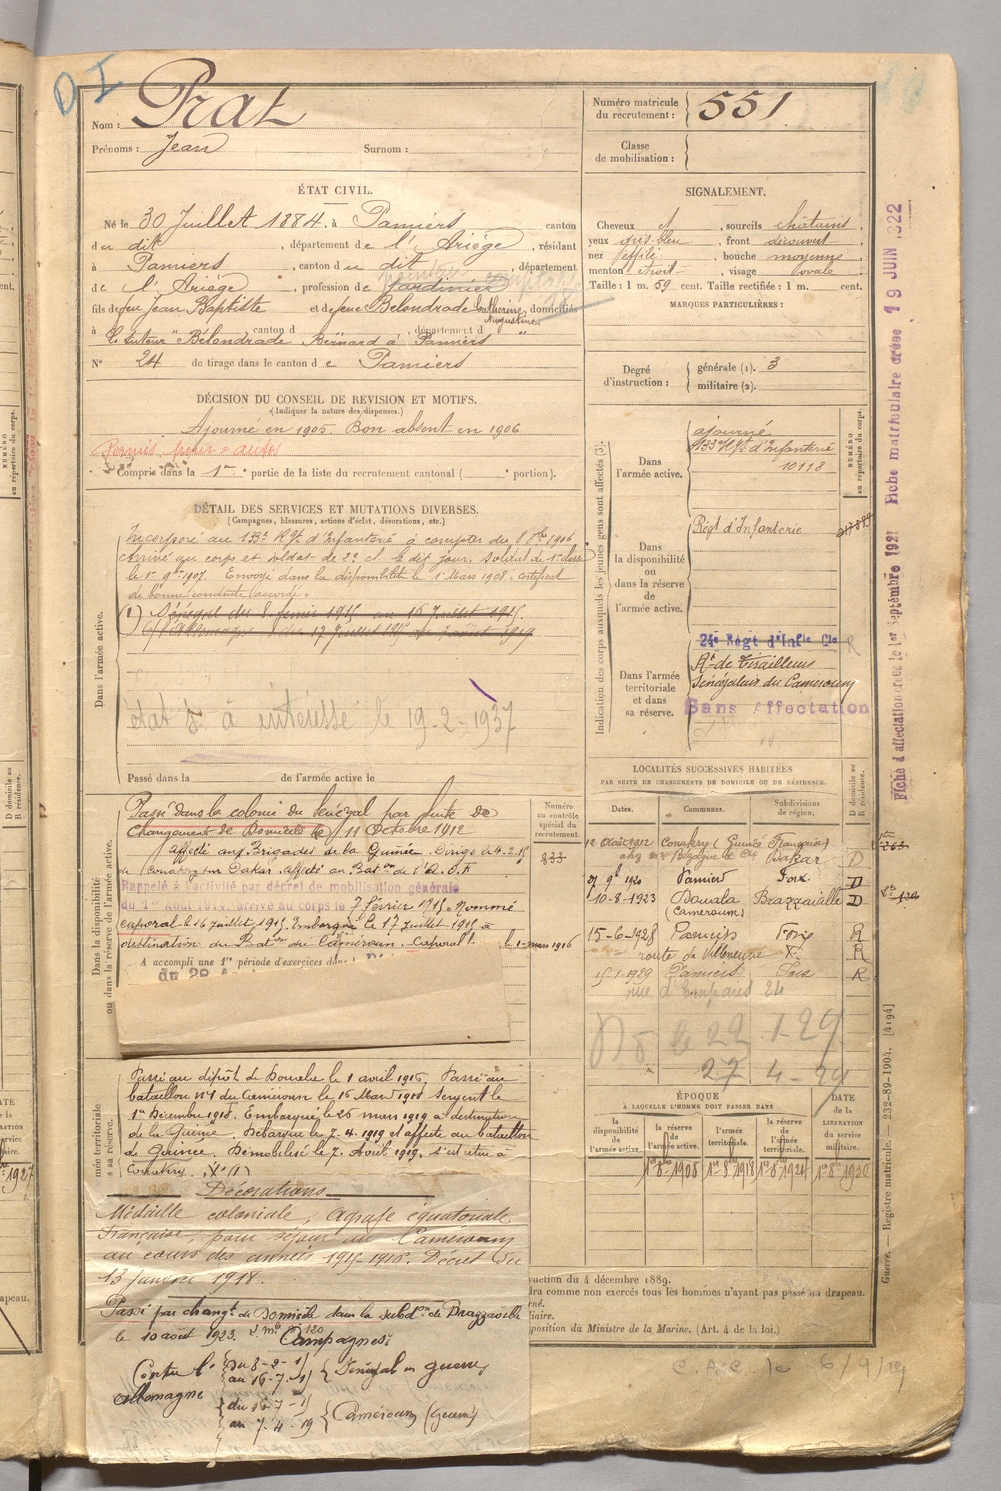 D I
Nom : Prat
Prénoms : Jean Surnom :
Numéro matricule du recrutement : 551
Classe de mobilisation :
ÉTAT CIVIL.
Né le 30 Juillet 1884, à Pamiers canton
du dit, département de l'Ariège, résidant
à Pamiers, canton du dit, département
de l'Ariège, profession de Jardinier
fils de feu Jean Baptiste et de feue Bélondrade Catherine Augustine, domiciliés
à canton d , département d
le tuteur Bélondrade Bernard à Pamiers
N° 24 de tirage dans le canton de Pamiers
SIGNALEMENT.
Cheveux et, sourcils châtains
yeux gris-bleu, front découvert
nez effilé, bouche moyenne
menton étroit, visage ovale
Taille : 1 m. 59 cent. Taille rectifiée : 1 m. cent.
MARQUES PARTICULIÈRES :
Degré d'instruction : générale (1). 3
militaire (2).
DÉCISION DU CONSEIL DE REVISION ET MOTIFS.
(Indiquer la nature des dispenses.)
Ajourné en 1905. Bon absent en 1906
Permis pour autos
Compris dans la 1re partie de la liste du recrutement cantonal ( e portion).
DÉTAIL DES SERVICES ET MUTATIONS DIVERSES.
(Campagnes, blessures, actions d'éclat, décorations, etc.)
Dans l'armée active.
Incorporé au 133e Rgt d'Infanterie à compter du 8 8bre 1906
Arrivé au corps et soldat de 2e cl. le dit jour. Soldat de 1e classe
le 1er 9bre 1907. Envoyé dans la disponibilité le 1 Mars 1908. Certificat
de bonne conduite accordé.
(1) Sénégal du 8 février 1915 au 16 juillet 1915.
état à intéressé le 19-2-1937
Passé dans la de l'armée active le
Indication des corps auxquels les jeunes gens sont affectés (3).
NUMÉRO au répertoire du corps.
Dans l'armée active.
ajourné
133 Rgt d'Infanterie
10118
Dans la disponibilité ou dans la réserve de l'armée active.
Régt d'Infanterie
Dans l'armée territoriale et dans sa réserve.
24e Régt d'Infie Cle R
Rt de Tirailleurs
Sénégalais du Cameroun
Sans Affectation
Fiche d'affectation créée le 1er Septembre 1921 Fiche matriculaire créée 19 JUIN 1922
Dans la disponibilité ou dans la réserve de l'armée active.
Passé dans la colonie du Sénégal par suite de
Changement de Domicile le 11 Octobre 1912
affecté aux Brigades de la Guinée. Dirigé le 4-2-15
de Conakry sur Dakar. affecté au Baton de l'A.O.F
Rappelé à l'activité par décret de mobilisation générale
du 1er Août 1914, arrivé au corps le 7 février 1915. Nommé
caporal le 16 juillet 1915. Embarqué le 17 juillet 1915 à
destination du Baton du Cameroun. Caporal le 1er mars 1916
A accompli une 1re période d'exercices dans
du 28
Numéro au contrôle spécial du recrutement.
833
LOCALITÉS SUCCESSIVES HABITÉES
PAR SUITE DE CHANGEMENTS DE DOMICILE OU DE RÉSIDENCE.
Dates. Communes. Subdivisions de région. D domicile ou R résidence.
12 août 1912 Conakry (Guinée Française)
Dakar D
27 9bre 1920 Pamiers Foix D
10-8-1923 Douala (Cameroun) Brazzaville D
15-6-1928 Pamiers Foix R
route de Villeneuve R
15-1-1929 Pamiers Foix R
rue d'Emparis 24
le 22 1-29
27 4-29
ÉPOQUE
À LAQUELLE L'HOMME DOIT PASSER DANS
la disponibilité de l'armée active. la réserve de l'armée active. l'armée territoriale. la réserve de l'armée territoriale.
DATE de la LIBÉRATION du service militaire.
Passé au dépôt de Douala le 1 avril 1916. Passé au
bataillon N°1 du Cameroun le 16 Mars 1918 sergent le
1er Décembre 1918. Embarqué le 26 mars 1919 à destination
de la Guinée. Débarqué le 7.4.1919 et affecté au bataillon
de Guinée. Démobilisé le 7 Août 1919. s'est retiré à
Conakry.
Décorations
Médaille coloniale, agrafe équatoriale
Française, pour séjour au Cameroun
au cours des années 1915-1916. Décret du
13 janvier 1918.
Passé par changt de Domicile dans la subdon de Brazzaville
le 10 août 1923.
Campagnes:
Contre l'Allemagne
du 8-2-15
au 16-7-15 Sénégal en guerre
du 16-7-15
au 7-4-19 Cameroun (guerre)
ruction du 4 décembre 1889.
dra comme non exercés tous les hommes n'ayant pas passé au drapeau.
rné.
liaire.
position du Ministre de la Marine. (Art. 4 de la loi.)
Guerre. — Registre matricule. — 232-89-1904. [4194]
C.A.C. le 6/9/19